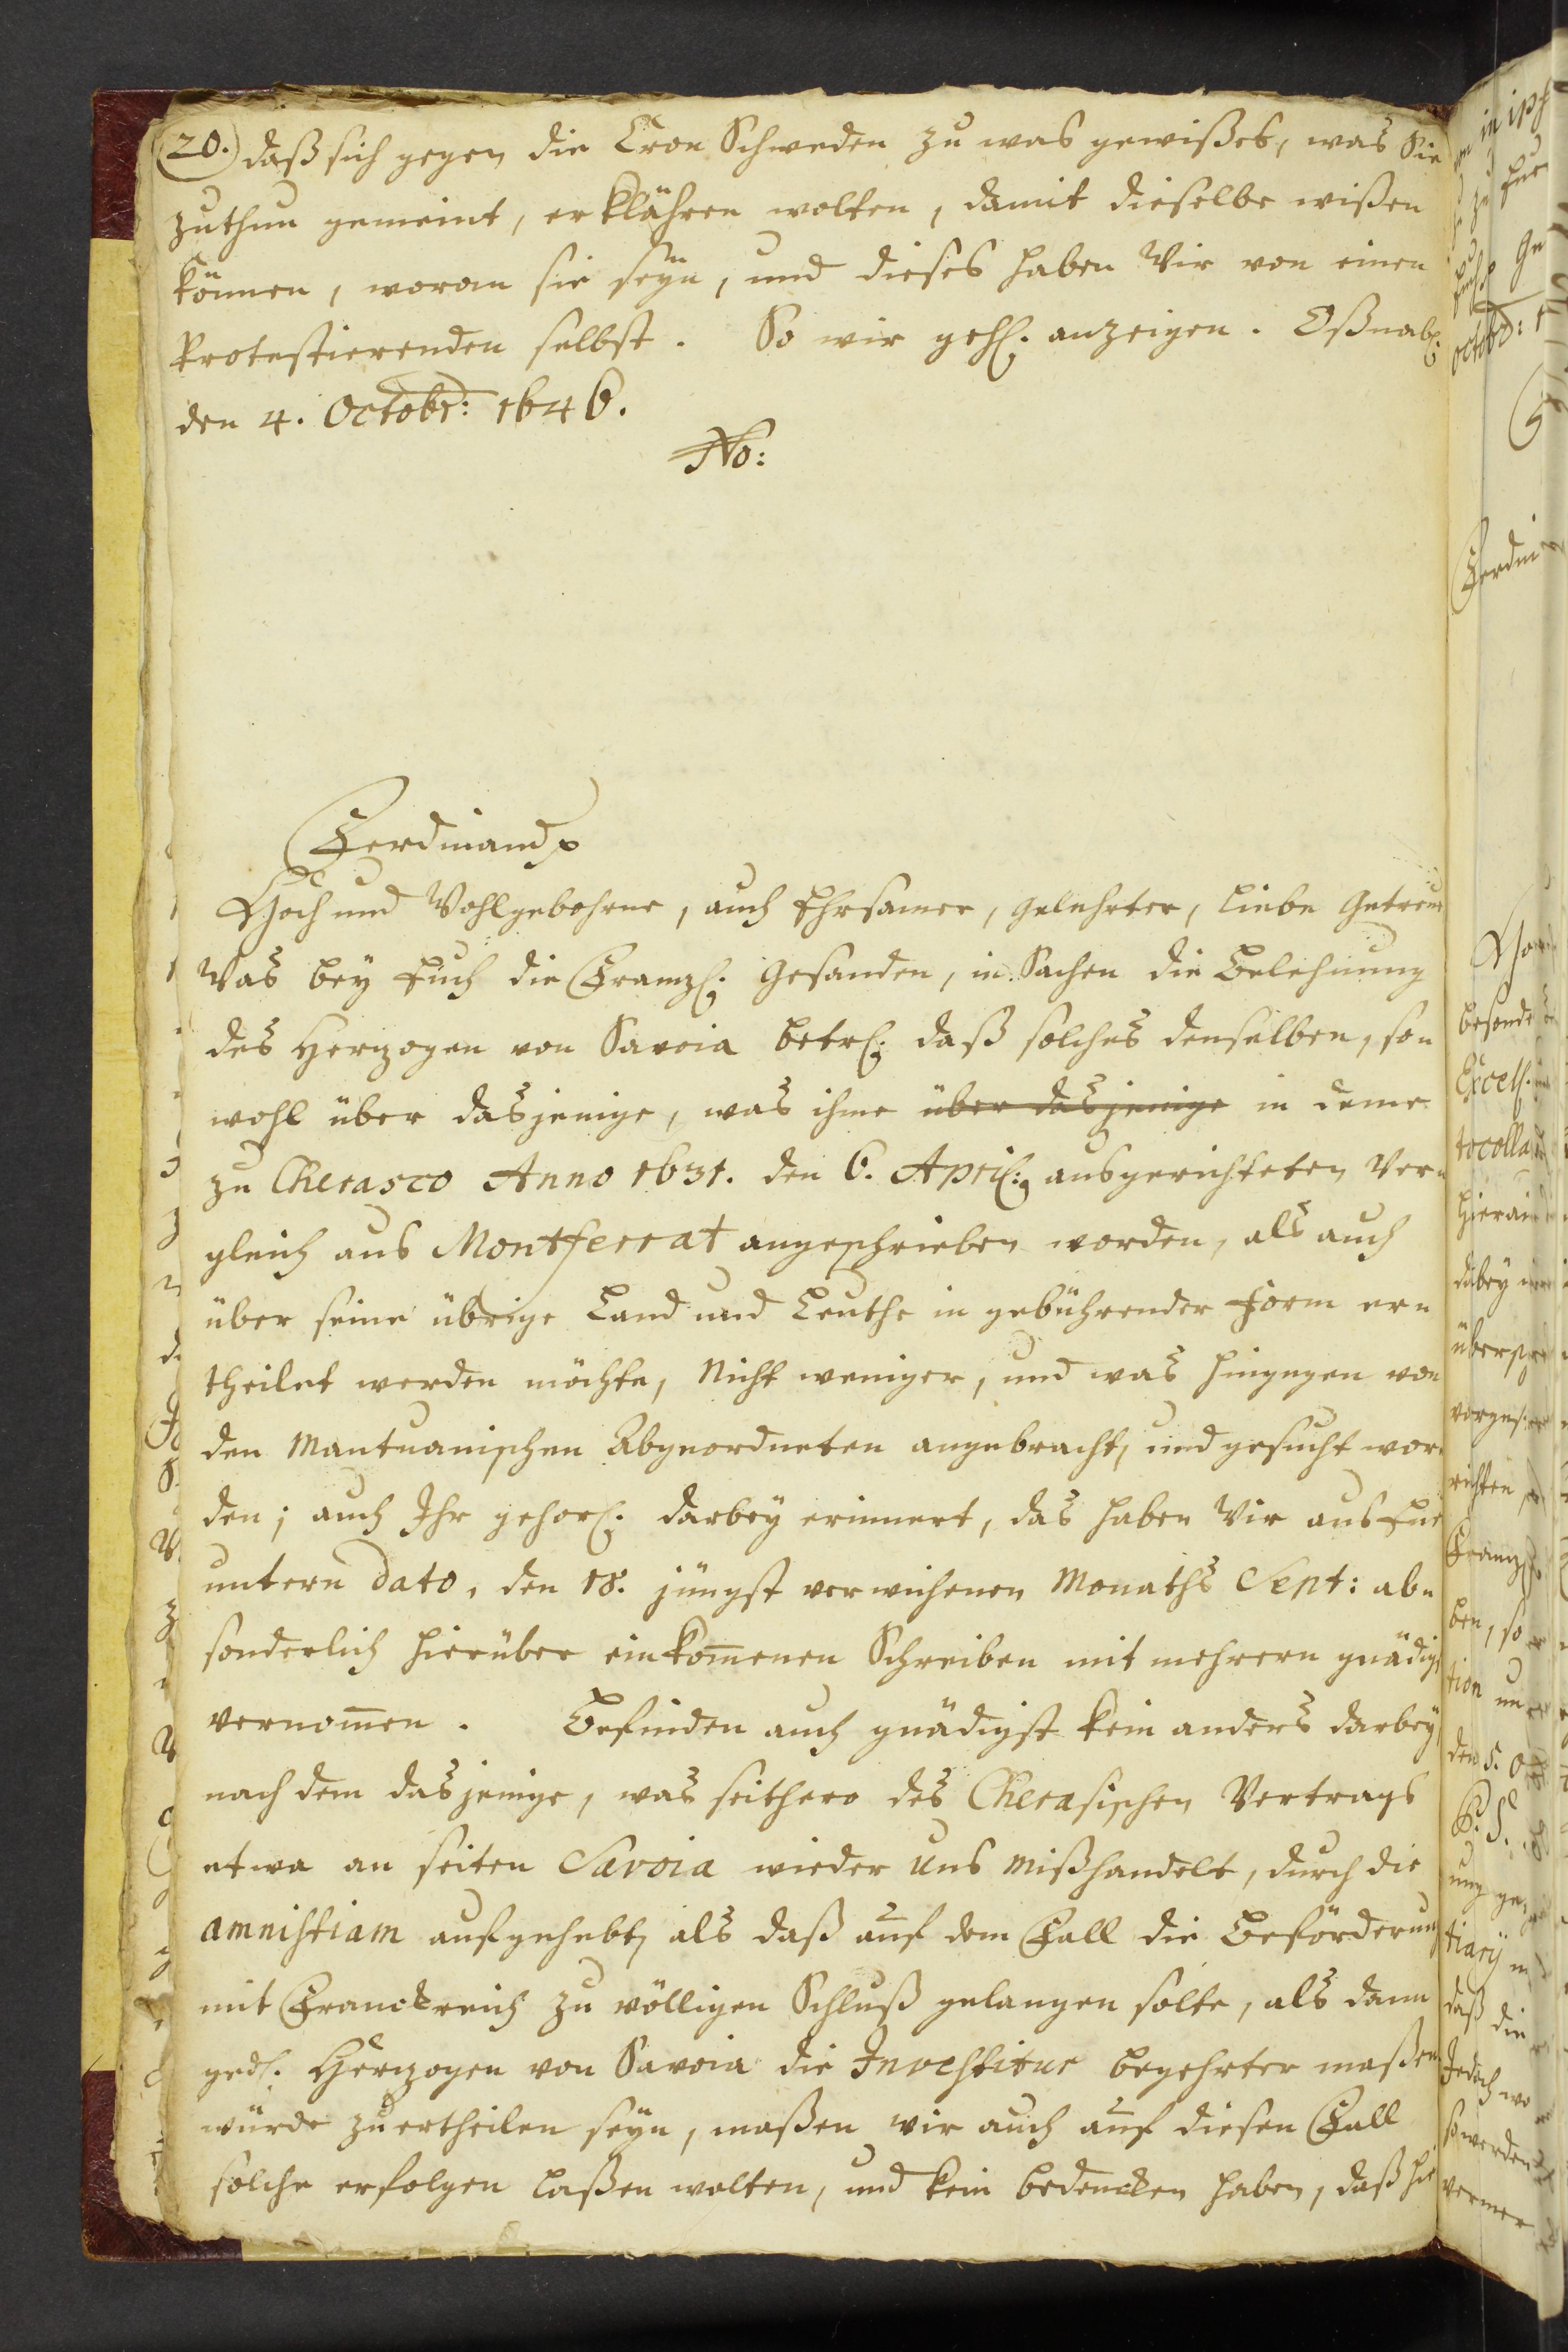 20.) daß sich gegen die Cron Schweden zu was gewißes, was Sie
zuthun gemeint, erklähren wolten, damit dieselbe wißen
können, woran sie seyn, und dieses haben Wir von einen
Protestierenden selbst. So wir geh. anzeigen. Oßnab.
den 4. Octobr: 1646.
No:
Ferdinand p
Hoch und Wohlgebohrne, auch Ehrsamer, gelehrter, liebe Getreue
Was bey Euch die Franz. Gesanden, in Sachen die Belehnung
des Herzogen von Savoia betr. daß solches denselben, so-
wohl über dasjenige, was ihme über dasjenige in deme
zu Cherasco Anno 1631. den 6. April: ausgerichteten Ver-
gleich aus Montferrat angeschrieben worden, als auch
über seine übrige Land und Leuthe in gebührender Form er-
theilet werden möchte, nicht weniger, und was hingegen von
den Mantuanischen Abgeordneten angebracht, und gesucht wor-
den; auch Ihr gehor. darbey erinnert, das haben Wir aus Eue
untern dato, den 18. jüngst verwichenen Monaths Sept: ab-
sonderlich hierüber einkom̅enen Schreiben mit mehrern gnädigst
vernom̅en. Befinden auch gnädigst kein anders darbey,
nach dem dasjenige, was seithero des Cherasischen Vertrags
etwa an seiten Savoia wieder Uns mißhandelt, durch die
amnistiam aufgehebt, als daß auf dem Fall die Beförderung
mit Franckreich zu völligen Schluß gelangen solte, als dann
ged. Herzogen von Savoia die Investitur begehrter maßen
würde zuertheilen seyn, maßen wir auch auf diesen Fall
solche erfolgen laßen wolten, und kein bedencken haben, daß hie